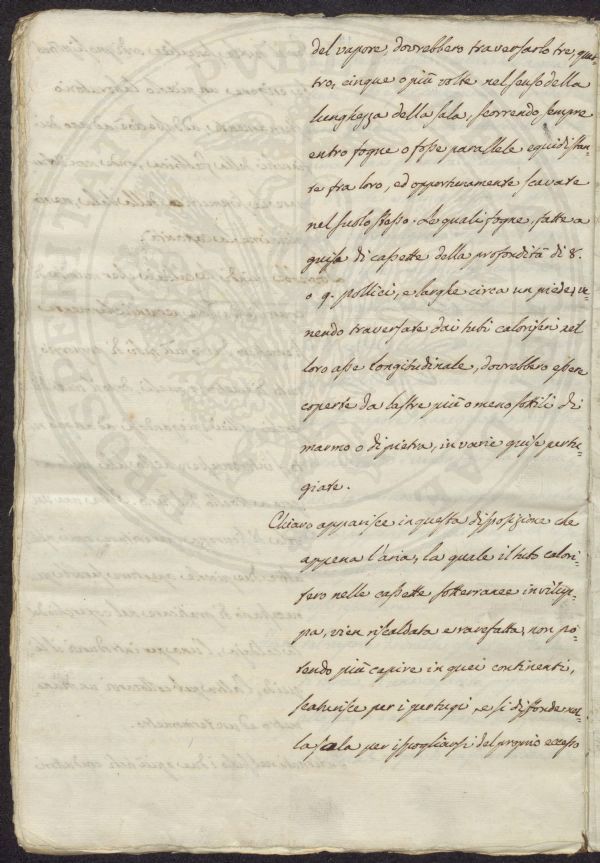 del vapore, dovrebbero traversarlo tre, quat-
tro, cinque o più volte nel senso della
lunghezza della sala, scorrendo sempre
entro fogne o fosse parallele equidistan-
te fra loro, ed opportunamente scavate
nel suolo stesso. Le quali fogne, fatte a
guisa di cassette della profondità di 8.
o 9. pollici, e larghe circa un piede, ve-
nendo traversate dai tubi caloriferi nel
loro asse longitudinale, dovrebbero essere
coperte da lastre più o meno sottili di
marmo o di pietra, in varie guise pertu-
giate.
Chiaro apparisce in questa disposizione che
appena l'aria, la quale il tubo calori-
fero nelle cassette sotterranee invilup-
pa, vien riscaldata e rarefatta, non po-
tendo più capire in quei continenti,
scaturisce per i pertugi, e si diffonde nel-
la sala per ispogliarsi del proprio eccesso